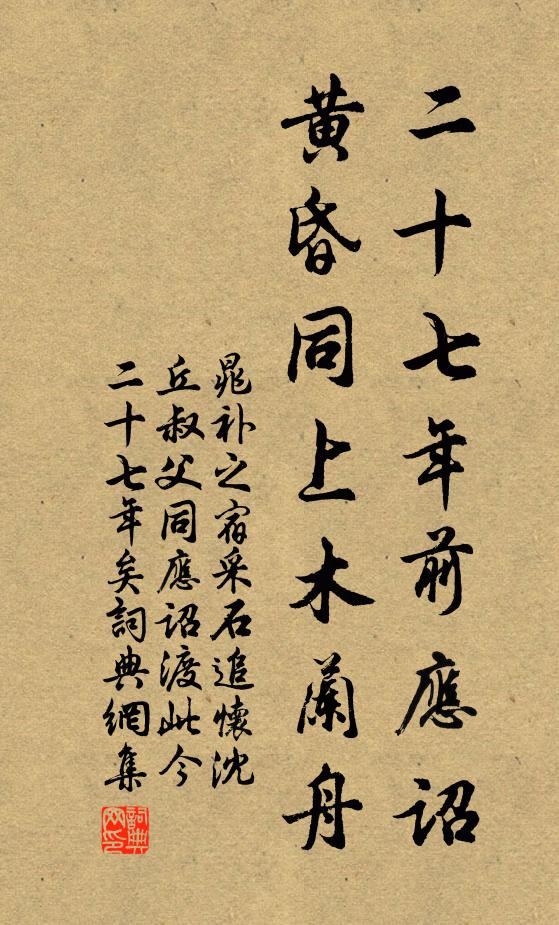 二十七年前應詔
黄昏同上木蘭舟
晁补之宿采石追懷沈
丘叔父同應詔渡此今
二十七年矣詞典網集
詞典
网印